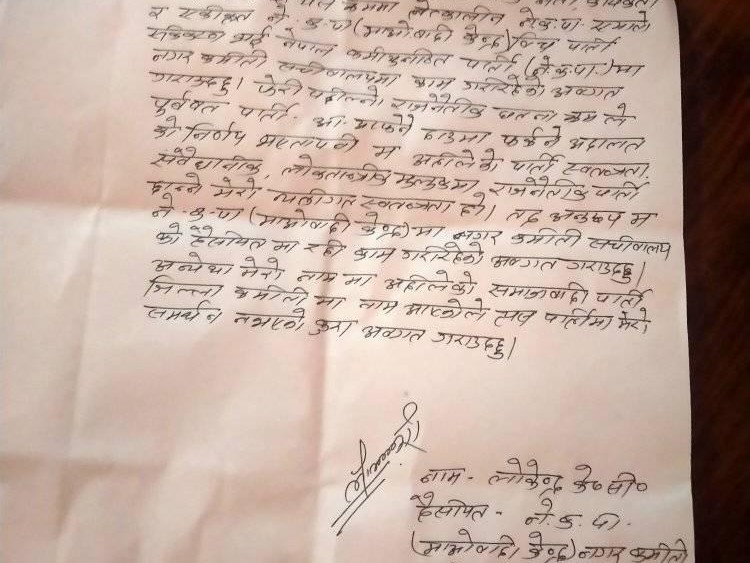 क्रममा तत्कालिन ने.क.पा. एमाले
र एकीकृत ने.क.पा (माओवादी केन्द्र) विच पार्टी
एकिकरण भई नेपाल कम्युनिष्ट पार्टी (ने.क.पा.) मा
नगर कमिटी सचीवालयमा काम गरिरहेको अवगत
गराउदछु। फेरी पछील्लो राजनैतीक घटना क्रम ले
पुर्ववत पार्टी आ-आफ्नै ठाउमा फर्कने अदालत
को निर्णय भएतापनी म अहीलेको पार्टी स्वतन्त्रता
संवैधानीक, लोकतान्त्रीक मुलुकमा, राजनैतीक पार्टी
मेरो स्वतन्त्रता हो। तद अनुरुप म
ने.क.पा (माओवादी केन्द्र) मा नगर कमीटी सचीवालय
को हैसियत मा रही काम गरिरहेको अवगत गराउदछु।
अन्यथा मेरो नाम मा अहीलेको समाजवादी पार्टी
जिल्ला कमीटी मा नाम आएकोले त्यस पार्टीमा मेरो
समर्थन नभएको कुरा अवगत गराउदछु।
नाम - लोकेन्द्र के०सी०
हैसियत - ने.क.पा.
(माओवादी केन्द्र) नगर कमीटी